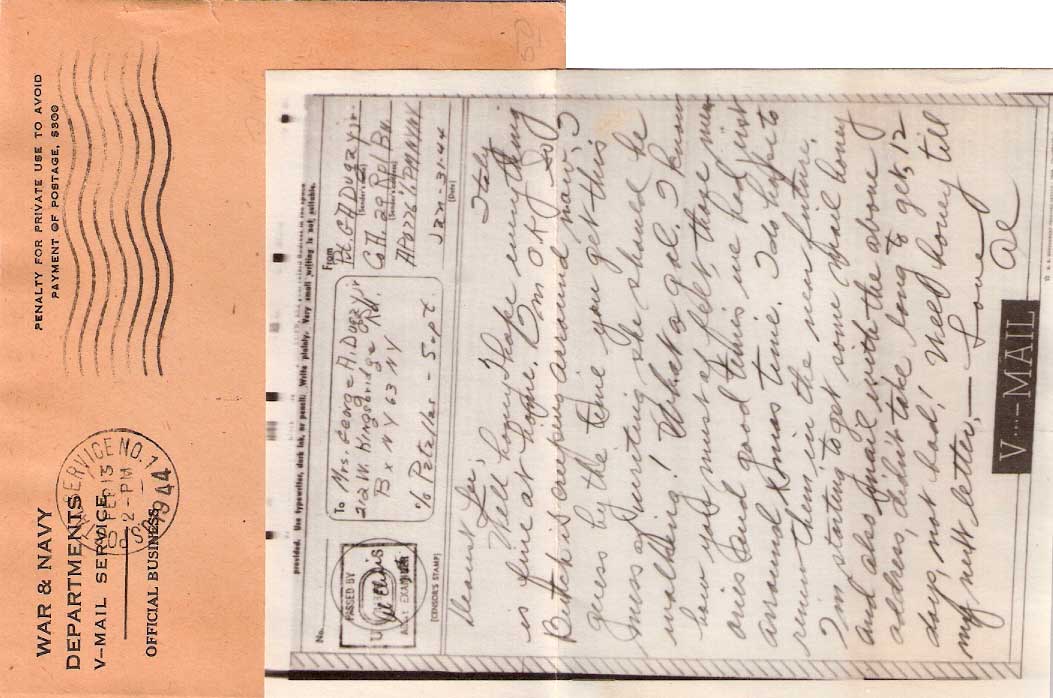 WAR & NAVY
DEPARTMENTS
V-MAIL SERVICE
OFFICIAL BUSINESS
PENALTY FOR PRIVATE USE TO AVOID
PAYMENT OF POSTAGE, $300
SERVICE NO. 1
FEB 13
2-PM
1944
provided. Use typewriter, dark ink, or pencil. Write plainly. Very small writing is not suitable.
No.
PASSED BY
ARMY EXAMINER
(CENSOR'S STAMP)
To Mrs. George A. Dugzyjr
22 W. Kingsbridge Rd.
Bx N Y 63 N Y
% Petallas - Sapt.
From
Pvt. G A Dugzyjr
(Sender's name)
Co A. 29 Rpl Bn.
(Sender's address)
APO 7766 PM NYNY
Jan-31-44
(Date)
Italy
Dearest
Well honey I hope everything
is fine at home. I'm O K
Butch is creeping around now I
guess by the time you get this
mess of writing she should be
walking! What a gal. I know
how you must of felt, those
ones and good times we had just
around Xmas time. I do hope to
renew them in the near future.
I'm starting to get some mail honey
and also Vmail with the above
address, didn't take long to get, 12
days, not bad! Well honey till
my next letter, —
Love
Al
V····-MAIL